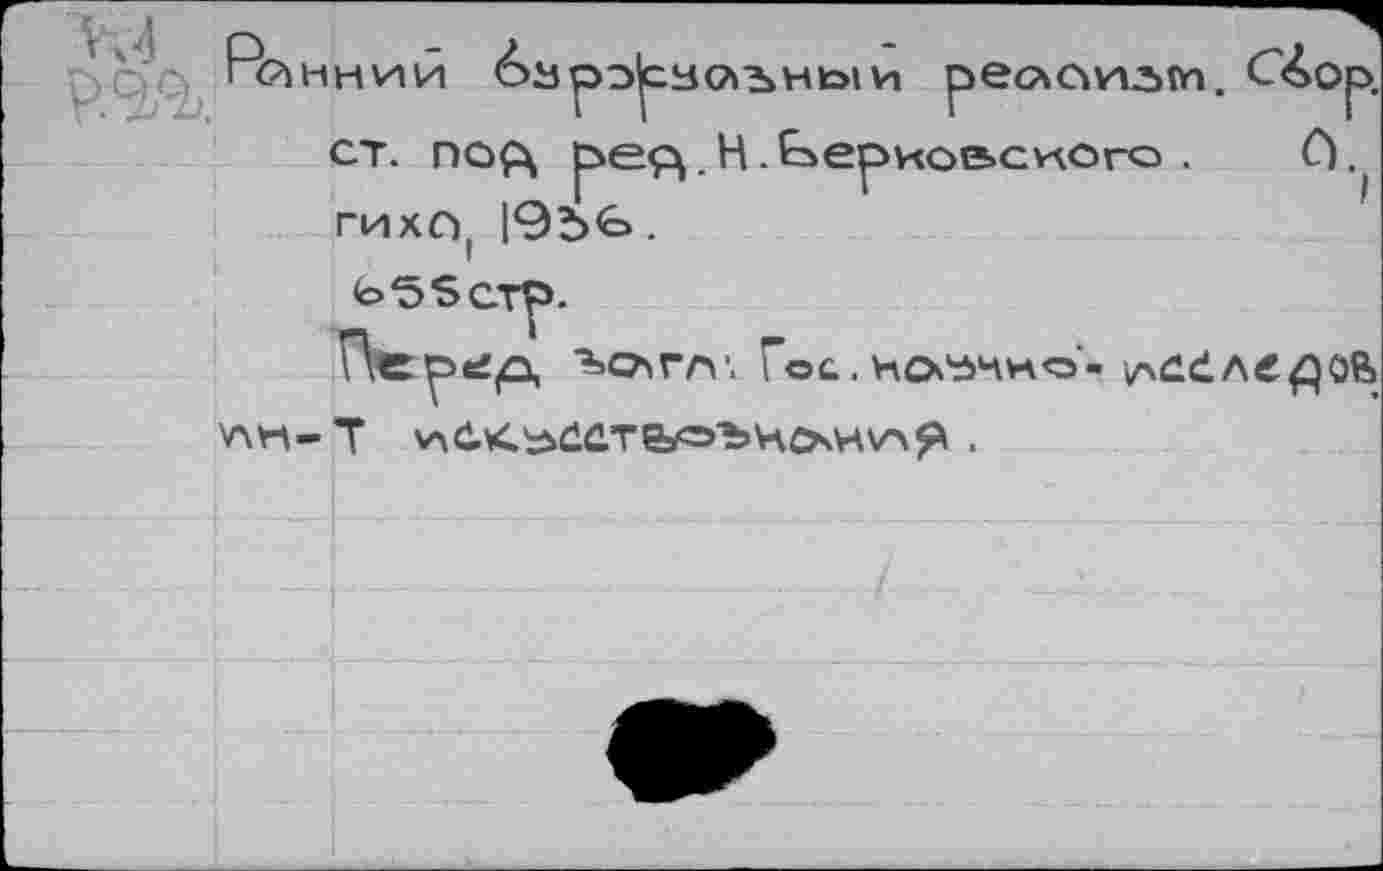 Ранний буржуазный реализм. Сбор.
ст. под ред. Н. Берковского. Л.,
гихл, 1936.
655 стр.
Перед загл: Гос. научно-исследов.
ин-т искусствознания.